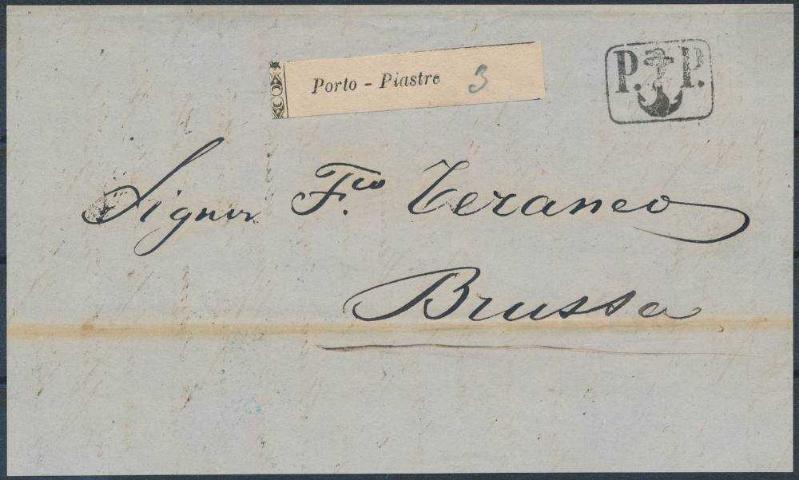 Porto - Piastre 3
P. P.
Signor F.co Teraneo
Brussa